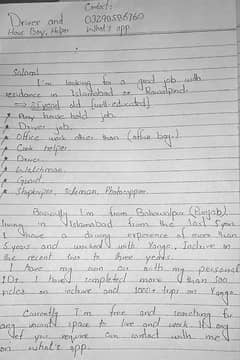 Contact:
Driver and 03290586760
House Boy, Helper What's app
Salam!
I'm looking for a good job with
residence in Islamabad or Rawalpindi.
25 year old [well-educated]
* Any house hold job
* Driver job.
* Office work other than (office boy)
* Cook helper
* Driver
* Watchman
* Guard
* Shopkeeper, Salesman, Photocopier
Basically I'm from Bahawalpur (Punjab)
living in Islamabad from the last 5 years
I have driving experience of more than
5 years and worked with Yango, Indrive in
the recent two to three years.
I have my own car with my personal
IDs. I have completed more than 500
rides on indrive and 1000+ trips on Yango.
Currently I'm free and searching for
any vacant space to live and work. If any
one requires can contact with me
on what's app